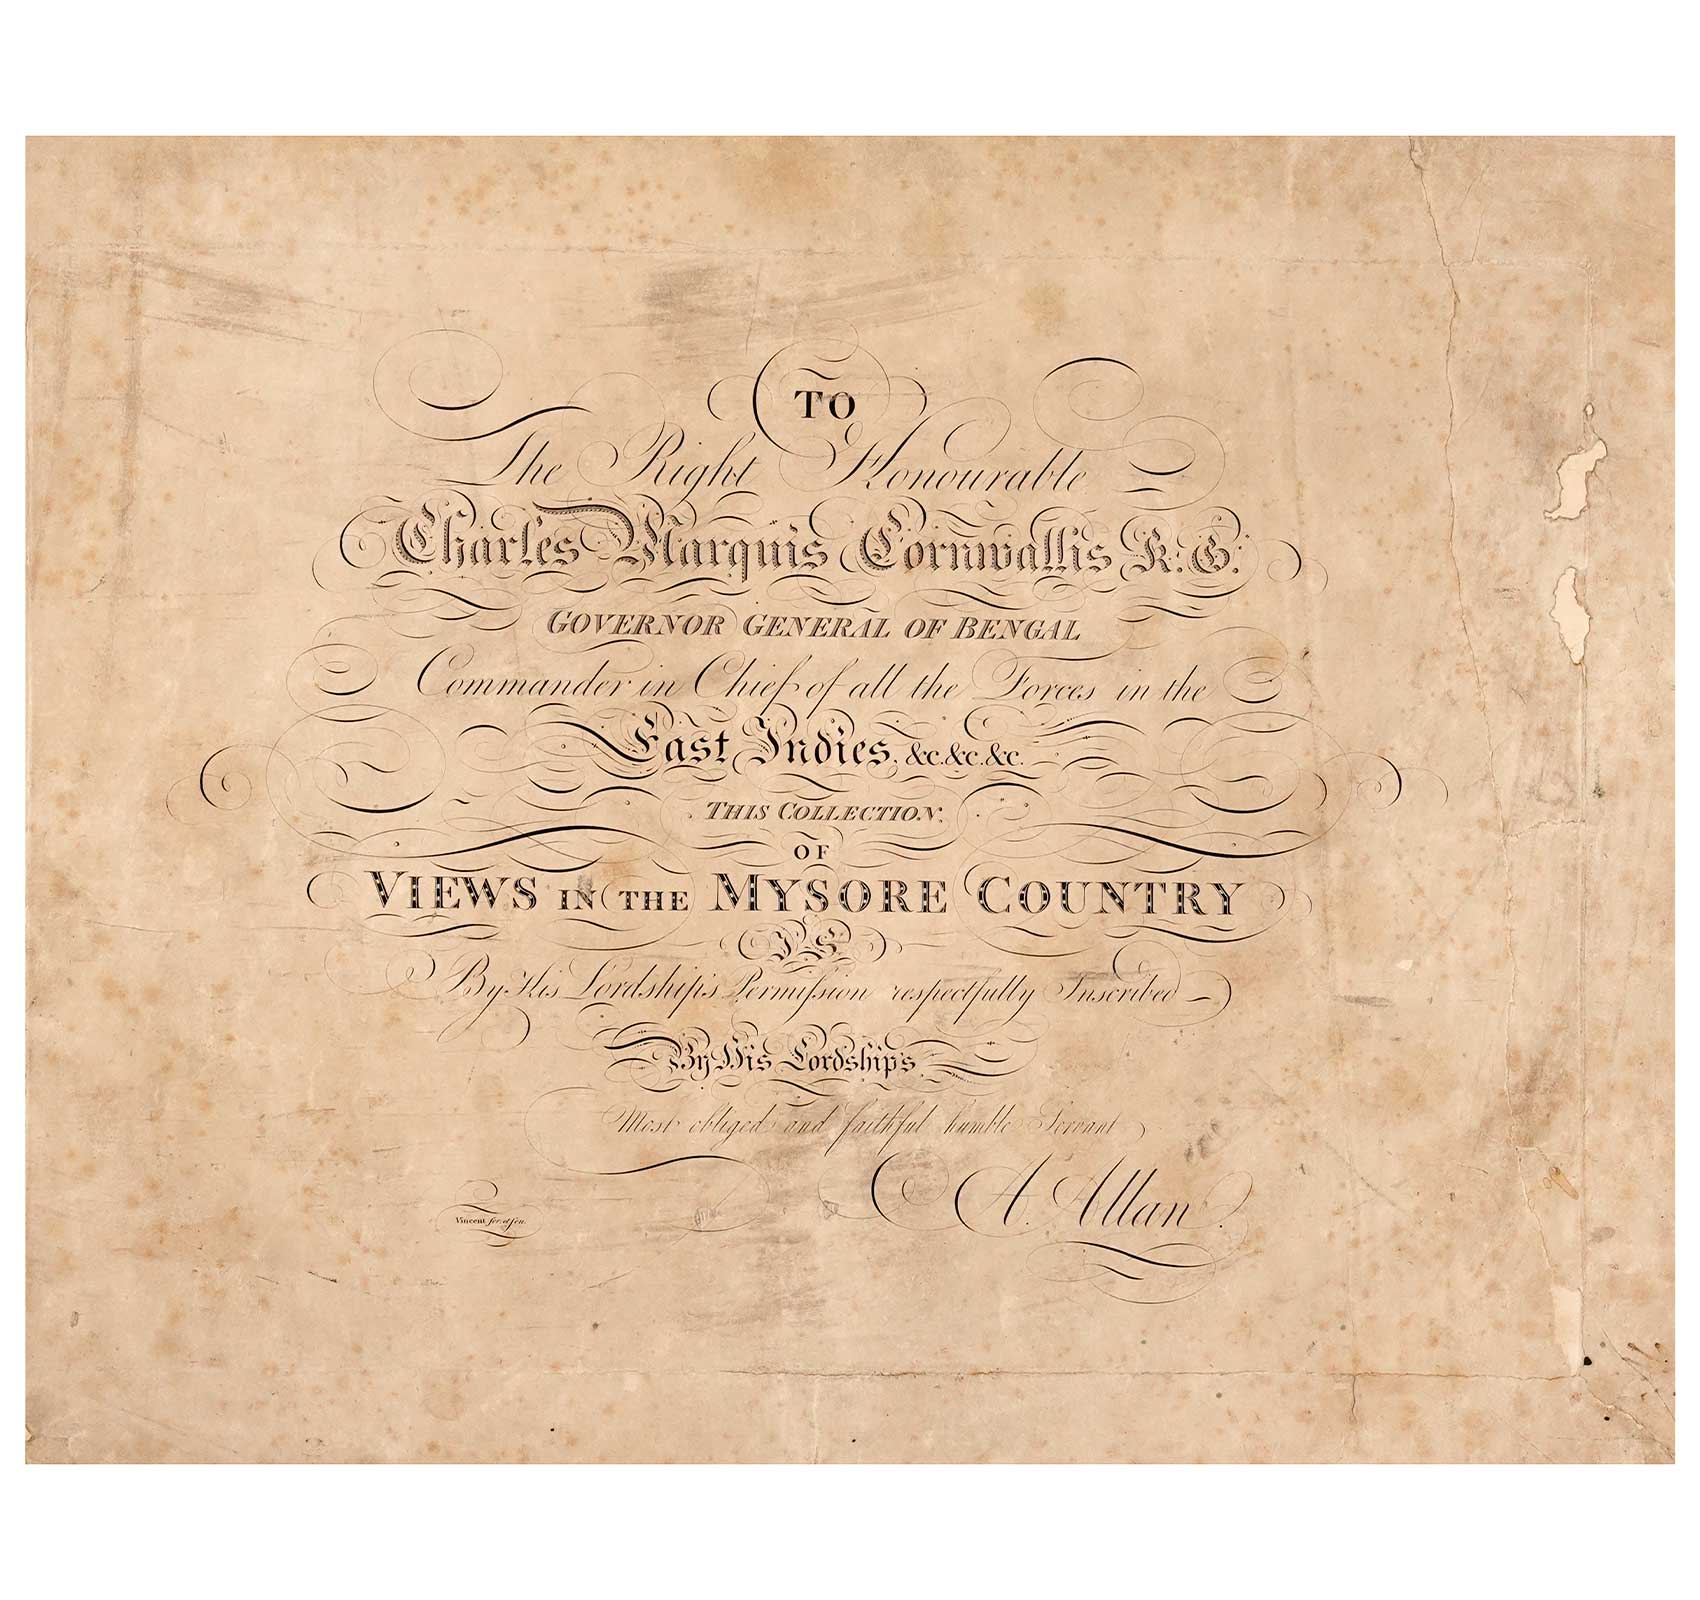 TO
The Right Honourable
Charles Marquis Cornwallis K.G.
GOVERNOR GENERAL OF BENGAL
Commander in Chief of all the Forces in the
East Indies, &c. &c. &c.
THIS COLLECTION,
OF
VIEWS IN THE MYSORE COUNTRY
IS
By His Lordship's Permiſsion respectfully Inscribed
By His Lordship's
Most obliged and faithful humble Servant
A. Allan.
Vincent